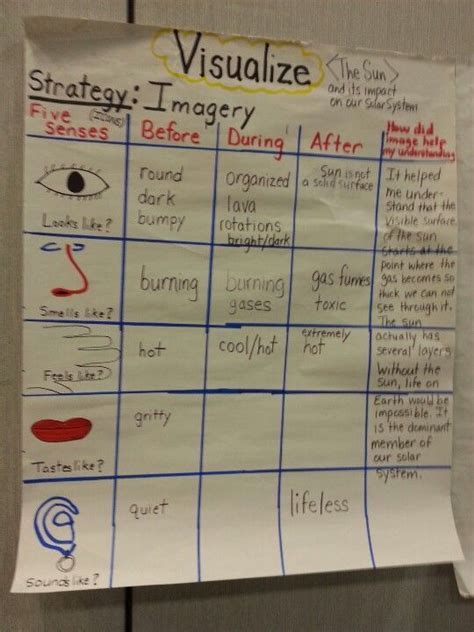 Visualize
<The Sun>
and its impact
on our Solar System
Strategy: Imagery
Five
(ICONS)
Senses
Before
During
After
How did
image help
my understanding
Looks like?
round
dark
bumpy
organized
lava
rotations
bright/dark
Sun is not
a solid surface
It helped
me under-
stand that the
visible surface
of the sun
starts at the
point where the
gas becomes so
thick we can not
see through it.
The sun
actually has
several layers
Without the
sun, life on
Earth would be
impossible. It
is the dominant
member of
our solar
system.
Smells like?
burning
burning
gases
gas fumes
toxic
Feels like?
hot
cool/hot
extremely
hot
Tastes like?
gritty
Sounds like?
quiet
lifeless